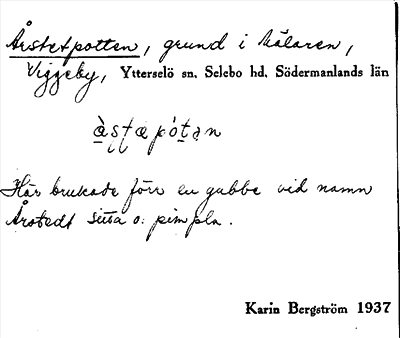 Årstetpotten, grund i Mälaren,
Viggeby, Ytterselö sn, Selebo hd, Södermanlands län
Här brukade förr en gubbe vid namn
Årstedt sitta o. pimpla.
Karin Bergström 1937